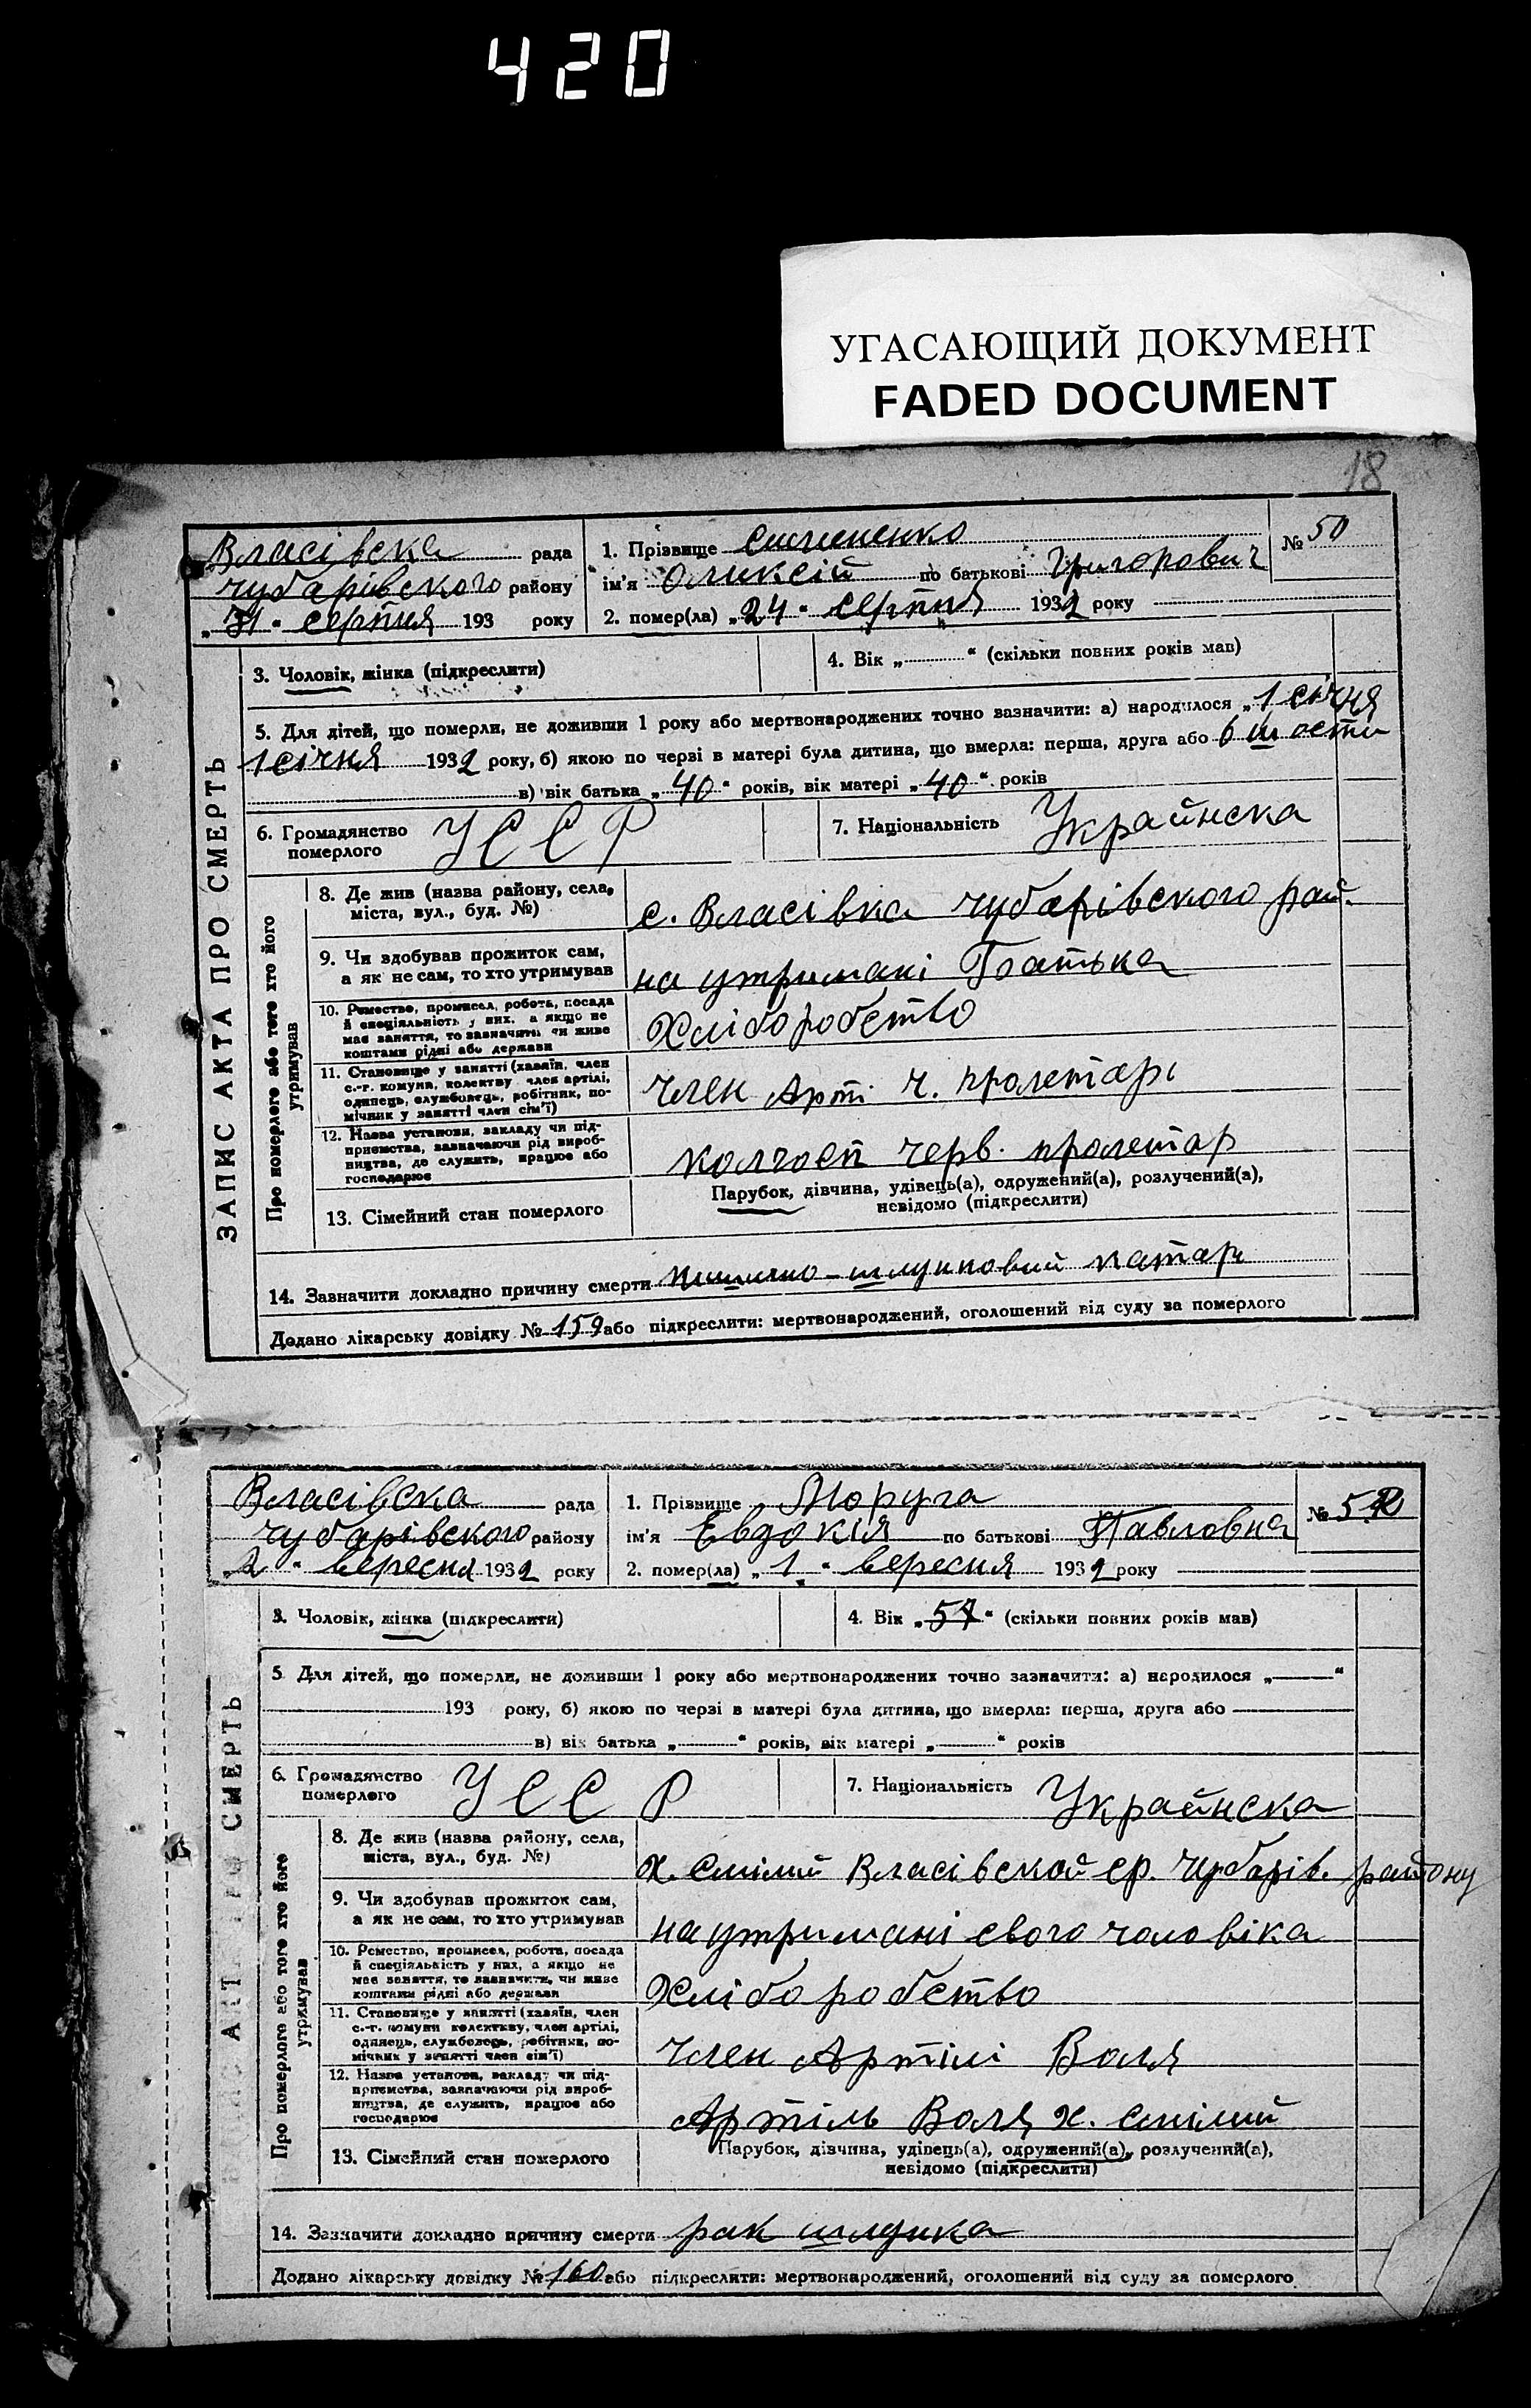 420
УГАСАЮЩИЙ ДОКУМЕНТ
FADED DOCUMENT
18
ЗАПИС АКТА ПРО СМЕРТЬ
Власівска рада
чубарівского району
„31“ серпня 193 року
1. Прізвище
№ 50
ім'я Оликсій по батькові Григорович
2. помер(ла) „24“ серпня 1932 року
3. Чоловік, жінка (підкреслити)
4. Вік „ “ (скільки повних років мав)
5. Для дітей, що померли, не доживши 1 року або мертвонароджених точно зазначити: а) народилося „1 січня
1 січня 1932 року, б) якою по черзі в матері була дитина, що вмерла: перша, друга або 6
в) вік батька „40“ років, вік матері „40“ років
6. Громадянство померлого УССР
7. Національність Украйнска
Про померлого або того хто його утримував
8. Де жив (назва району, села, міста, вул., буд. №)
с. Власівка чубарівского рай.
9. Чи здобував прожиток сам, а як не сам, то хто утримував
на утримані Батька
10. Ремество, промисел, робота, посада й спеціяльність у них, а якщо не має заняття, то зазначити, чи живе коштами рідні або держави
Хліборобство
11. Становище у занятті (хазяїн, член с.-г. комуни, колективу, член артілі, одинець, службовець, робітник, помічник у занятті член сім'ї)
член Арт. ч. пролетарі
12. Назва установи, закладу чи підприємства, зазначаючи рід виробництва, де служить, працює або господарює
колгосп черв. пролетар
13. Сімейний стан померлого
Парубок, дівчина, удівець(а), одружений(а), розлучений(а),
невідомо (підкреслити)
14. Зазначити докладно причину смерти кишично-шлунковий катарь
Додано лікарську довідку № 159 або підкреслити: мертвонароджений, оголошений від суду за померлого
Власівска рада
чубарівского району
„2“ вересня 1932 року
1. Прізвище Моруга
№ 52
ім'я Евдокія по батькові Павловна
2. помер(ла) „1“ вересня 1932 року
3. Чоловік, жінка (підкреслити)
4. Вік „57“ (скільки повних років мав)
5. Для дітей, що померли, не доживши 1 року або мертвонароджених точно зазначити: а) народилося „ “
193 року, б) якою по черзі в матері була дитина, що вмерла: перша, друга або
в) вік батька „ “ років, вік матері „ “ років
6. Громадянство померлого УССР
7. Національність Украйнска
Про померлого або того хто його утримував
8. Де жив (назва району, села, міста, вул., буд. №)
х. Смілий Власівской ср. Чубарів. району
9. Чи здобував прожиток сам, а як не сам, то хто утримував
на утримані свого чоловіка
10. Ремество, промисел, робота, посада й спеціяльність у них, а якщо не має заняття, то зазначити, чи живе коштами рідні або держави
Хліборобство
11. Становище у занятті (хазяїн, член с.-г. комуни, колективу, член артілі, одинець, службовець, робітник, помічник у занятті член сім'ї)
член Артілі Воля
12. Назва установи, закладу чи підприємства, зазначаючи рід виробництва, де служить, працює або господарює
Артіль Воля х. Смілий
13. Сімейний стан померлого
Парубок, дівчина, удівець(а), одружений(а), розлучений(а),
невідомо (підкреслити)
14. Зазначити докладно причину смерти рак шлунка
Додано лікарську довідку № 160 або підкреслити: мертвонароджений, оголошений від суду за померлого